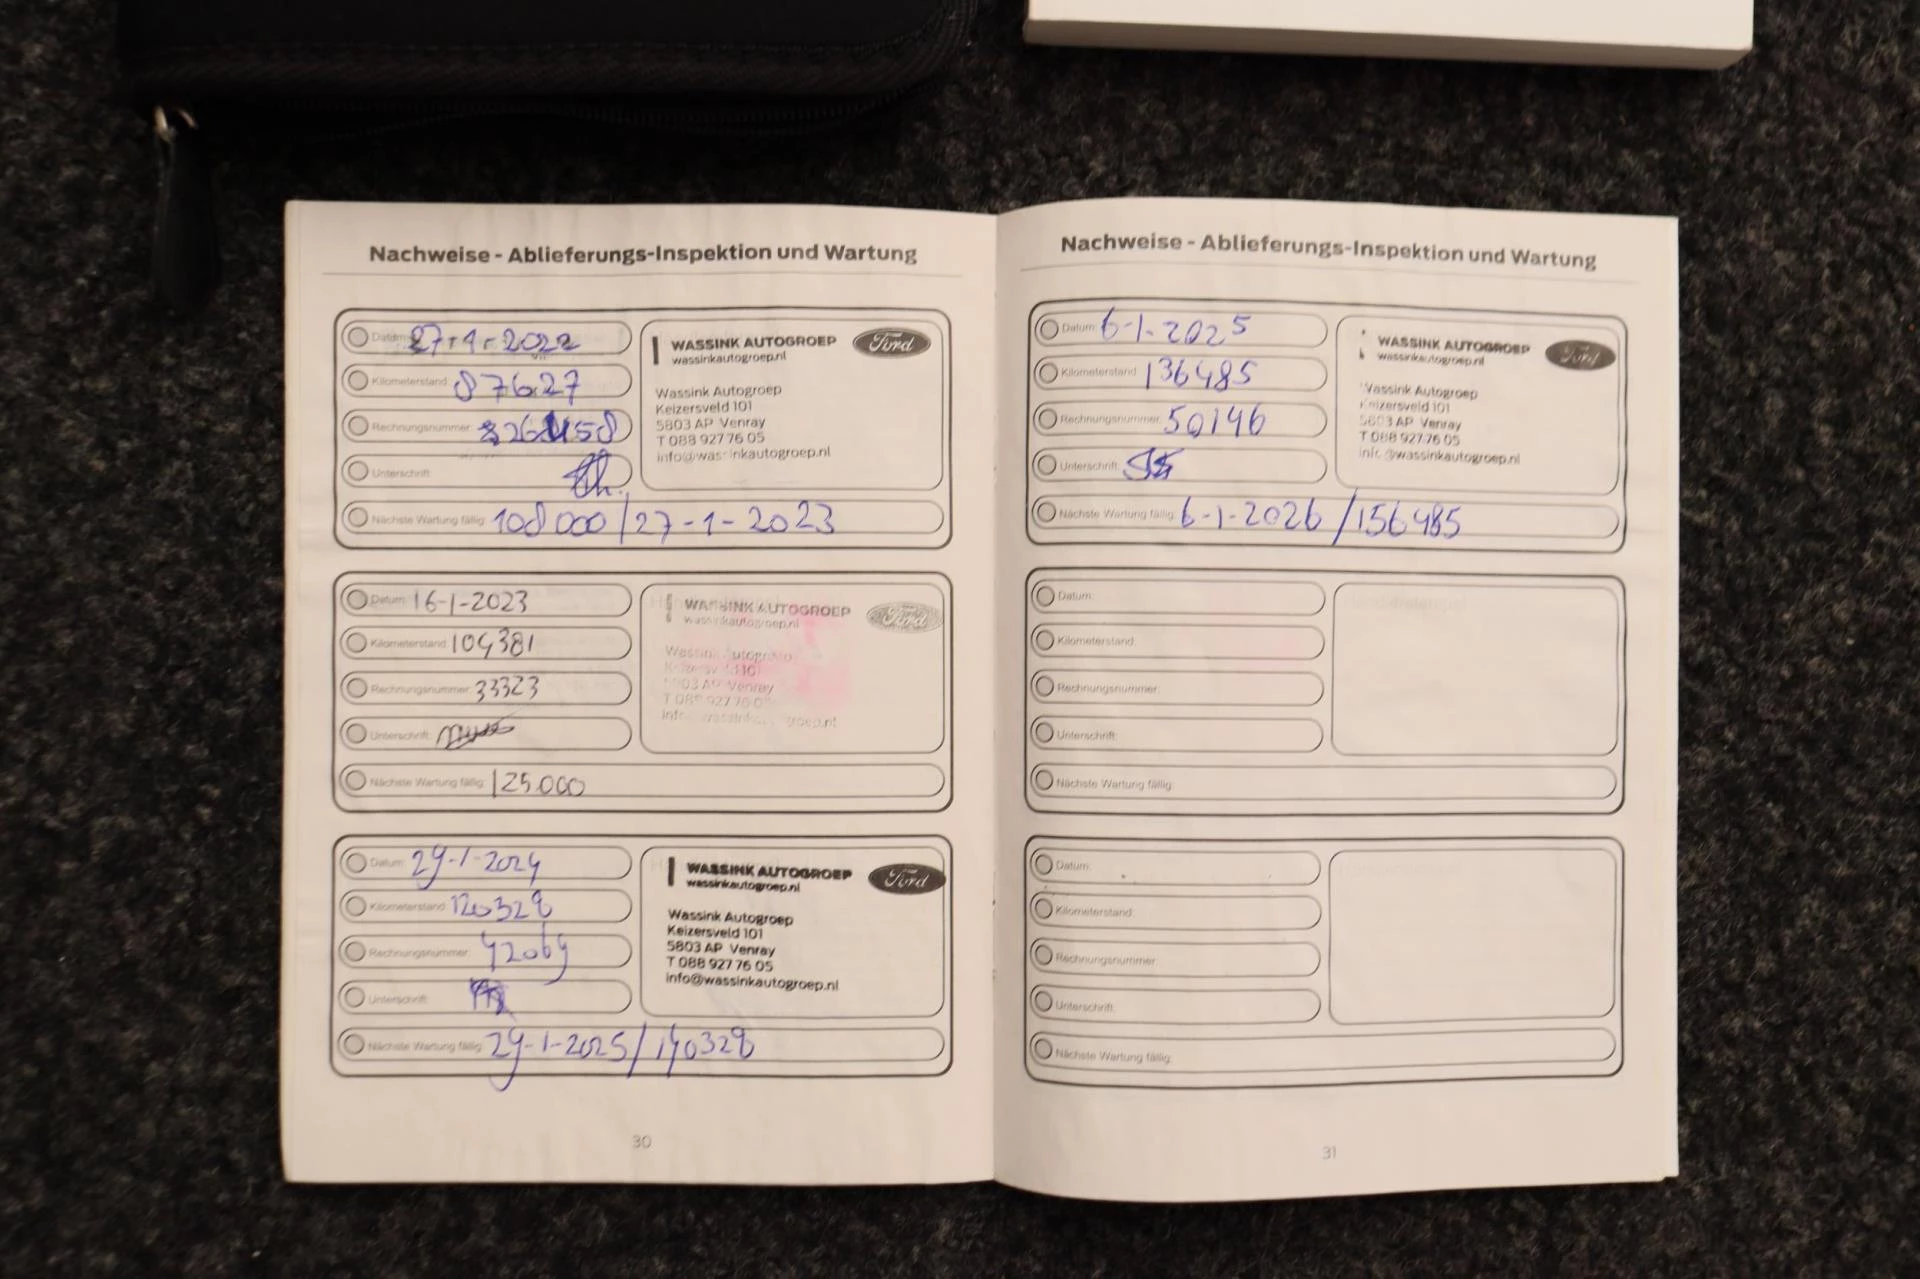 Nachweise - Ablieferungs-Inspektion und Wartung
Datum: 27-1-2022
Kilometerstand: 87627
Rechnungsnummer:
Unterschrift:
Nächste Wartung fällig: 108000/27-1-2023
WASSINK AUTOGROEP
wassinkautogroep.nl
Ford
Wassink Autogroep
Keizersveld 101
5803 AP Venray
T 088 927 76 05
info@wassinkautogroep.nl
Datum: 16-1-2023
Kilometerstand: 104381
Rechnungsnummer: 33323
Unterschrift:
Nächste Wartung fällig: 125.000
WASSINK AUTOGROEP
wassinkautogroep.nl
Ford
Wassink Autogroep
Keizersveld 101
5803 AP Venray
T 088 927 76 05
info@wassinkautogroep.nl
Datum: 29-1-2024
Kilometerstand: 120328
Rechnungsnummer: 42069
Unterschrift:
Nächste Wartung fällig: 29-1-2025/140328
WASSINK AUTOGROEP
wassinkautogroep.nl
Ford
Wassink Autogroep
Keizersveld 101
5803 AP Venray
T 088 927 76 05
info@wassinkautogroep.nl
30
Nachweise - Ablieferungs-Inspektion und Wartung
Datum: 6-1-2025
Kilometerstand: 136485
Rechnungsnummer: 50146
Unterschrift:
Nächste Wartung fällig: 6-1-2026/156485
WASSINK AUTOGROEP
wassinkautogroep.nl
Ford
Wassink Autogroep
Keizersveld 101
5803 AP Venray
T 088 927 76 05
info@wassinkautogroep.nl
Datum:
Kilometerstand:
Rechnungsnummer:
Unterschrift:
Nächste Wartung fällig:
Datum:
Kilometerstand:
Rechnungsnummer:
Unterschrift:
Nächste Wartung fällig:
31